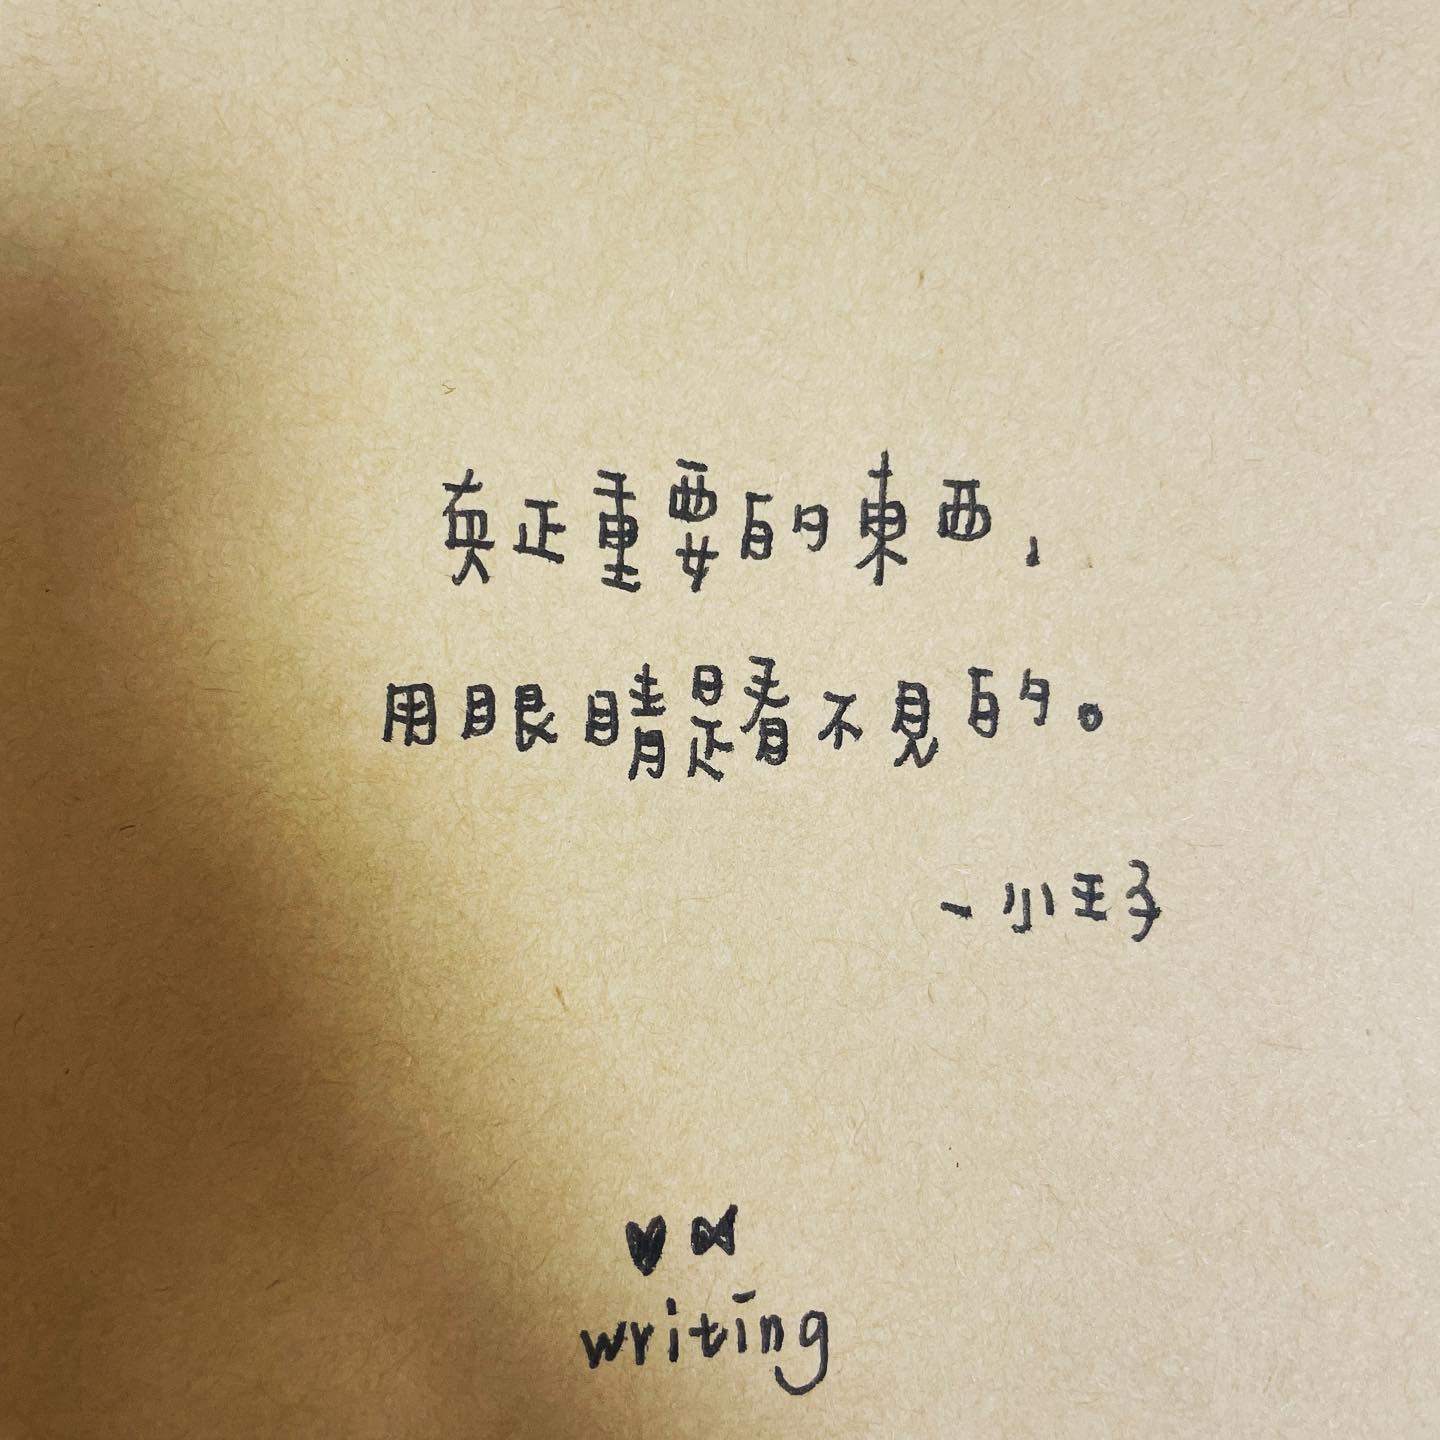 真正重要的東西,
用眼睛是看不見的。
-小王子
writing